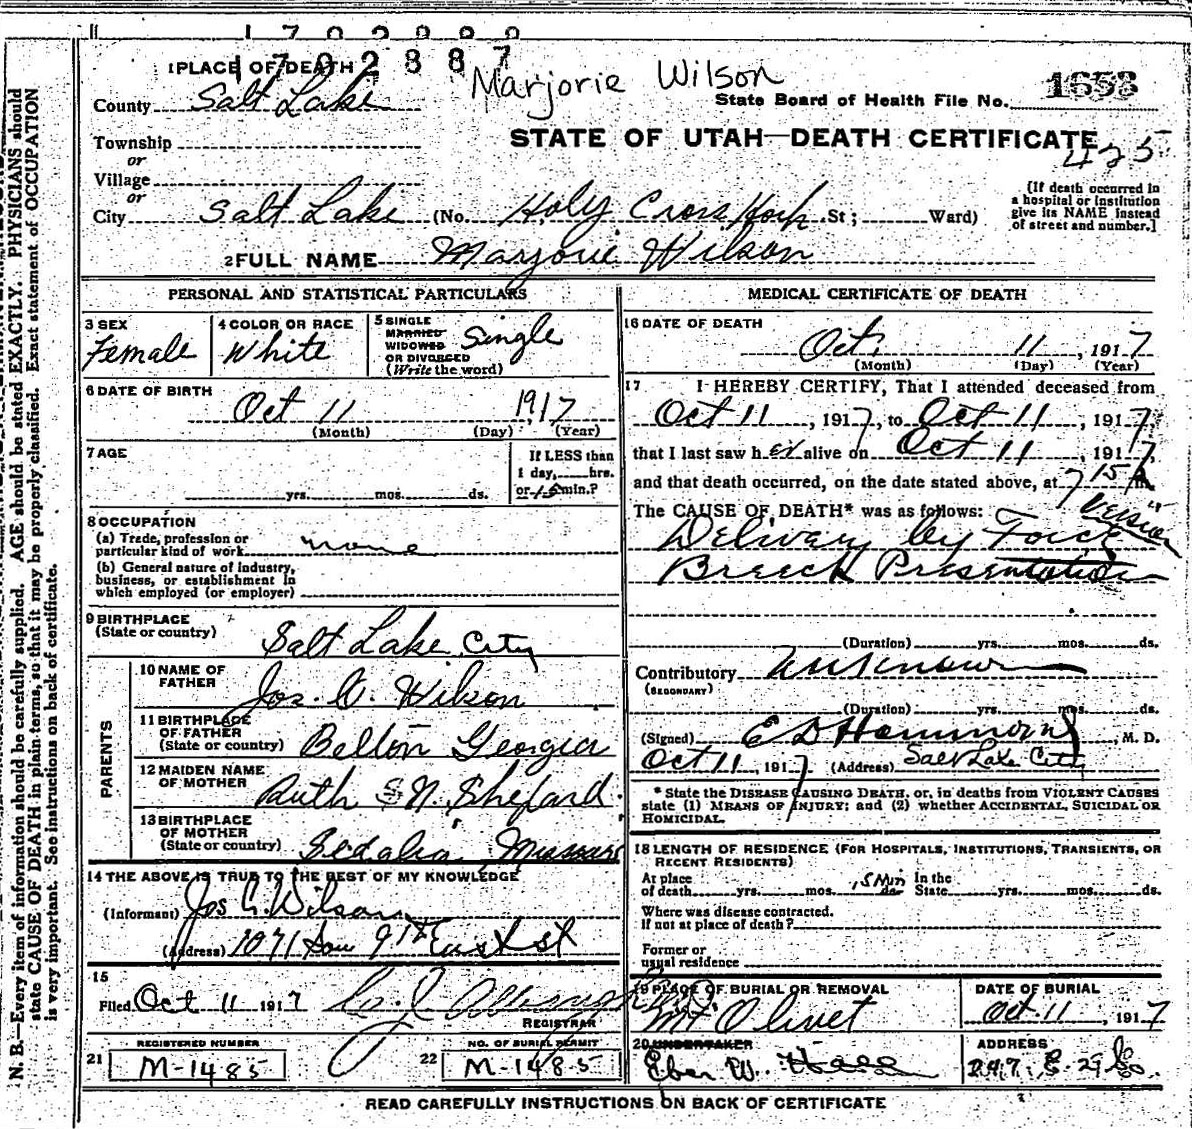 1702887
1 PLACE OF DEATH
Marjorie Wilson
County Salt Lake
State Board of Health File No. 1653
Township
or
STATE OF UTAH—DEATH CERTIFICATE
425
Village
or
City Salt Lake (No. Holy Cross Hosp St; Ward)
[If death occurred in
a hospital or institution
give its NAME instead
of street and number.]
2 FULL NAME Marjorie Wilson
PERSONAL AND STATISTICAL PARTICULARS
3 SEX
Female
4 COLOR OR RACE
White
5 SINGLE
MARRIED
WIDOWED
OR DIVORCED
(Write the word)
Single
6 DATE OF BIRTH
Oct 11 1917
(Month) (Day) (Year)
7 AGE
yrs. mos. ds.
If LESS than
1 day, hrs.
or 15 min.?
8 OCCUPATION
(a) Trade, profession or
particular kind of work none
(b) General nature of industry,
business, or establishment in
which employed (or employer)
9 BIRTHPLACE
(State or country)
Salt Lake City
PARENTS
10 NAME OF
FATHER
Jos. C. Wilson
11 BIRTHPLACE
OF FATHER
(State or country)
Belton Georgia
12 MAIDEN NAME
OF MOTHER
Ruth S N. Shepard
13 BIRTHPLACE
OF MOTHER
(State or country)
Sedalia
14 THE ABOVE IS TRUE TO THE BEST OF MY KNOWLEDGE
(Informant) Jos C. Wilson
(Address) 1071 Sou 9th East st
15
Filed Oct 11 1917
REGISTRAR
REGISTERED NUMBER
21 M-1485
NO. OF BURIAL PERMIT
22 M-1485
MEDICAL CERTIFICATE OF DEATH
16 DATE OF DEATH
Oct. 11, 1917
(Month) (Day) (Year)
17 I HEREBY CERTIFY, That I attended deceased from
Oct 11, 1917, to Oct 11, 1917,
that I last saw her alive on Oct 11, 1917,
and that death occurred, on the date stated above, at 7 15
The CAUSE OF DEATH* was as follows:
version
Delivery by Force
Breech Presentation
(Duration) yrs. mos. ds.
Contributory unknown
(SECONDARY)
(Duration) yrs. mos. ds.
(Signed) E D Hammond, M. D.
Oct 11, 1917 (Address) Salt Lake City
* State the DISEASE CAUSING DEATH, or, in deaths from VIOLENT CAUSES
state (1) MEANS OF INJURY; and (2) whether ACCIDENTAL, SUICIDAL OR
HOMICIDAL.
18 LENGTH OF RESIDENCE (FOR HOSPITALS, INSTITUTIONS, TRANSIENTS, OR
RECENT RESIDENTS)
At place
of death yrs. mos. 15 Min ds. In the
State yrs. mos. ds.
Where was disease contracted.
If not at place of death?
Former or
usual residence
19 PLACE OF BURIAL OR REMOVAL
Mt Olivet
DATE OF BURIAL
Oct 11, 1917
20 UNDERTAKER
Eber W. Hall
ADDRESS
247 E. 29
READ CAREFULLY INSTRUCTIONS ON BACK OF CERTIFICATE
N. B.—Every item of information should be carefully supplied. AGE should be stated EXACTLY. PHYSICIANS should
state CAUSE OF DEATH in plain terms, so that it may be properly classified. Exact statement of OCCUPATION
is very important. See instructions on back of certificate.